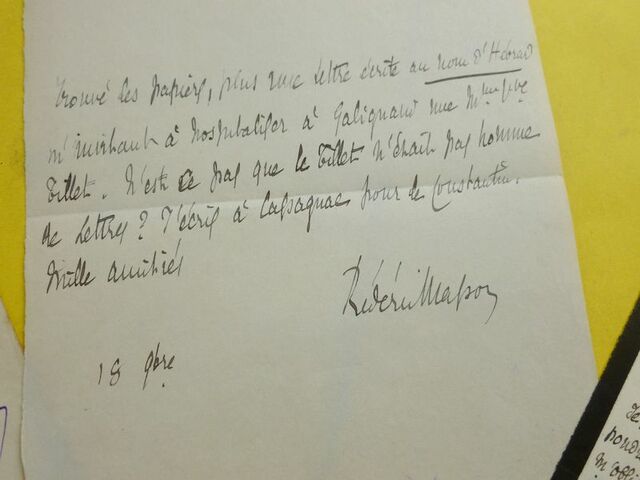 trouvé les papiers, plus une lettre écrite au nom d'Hébrard
m'invitant à hospitaliser à Galignani une Mme Vve
Tillet. N'est ce pas que le Tillet n'était pas homme
de lettres? J'écris à Cassagnac pour le Constantin.
Mille amitiés
Frédéric Masson
18 9bre